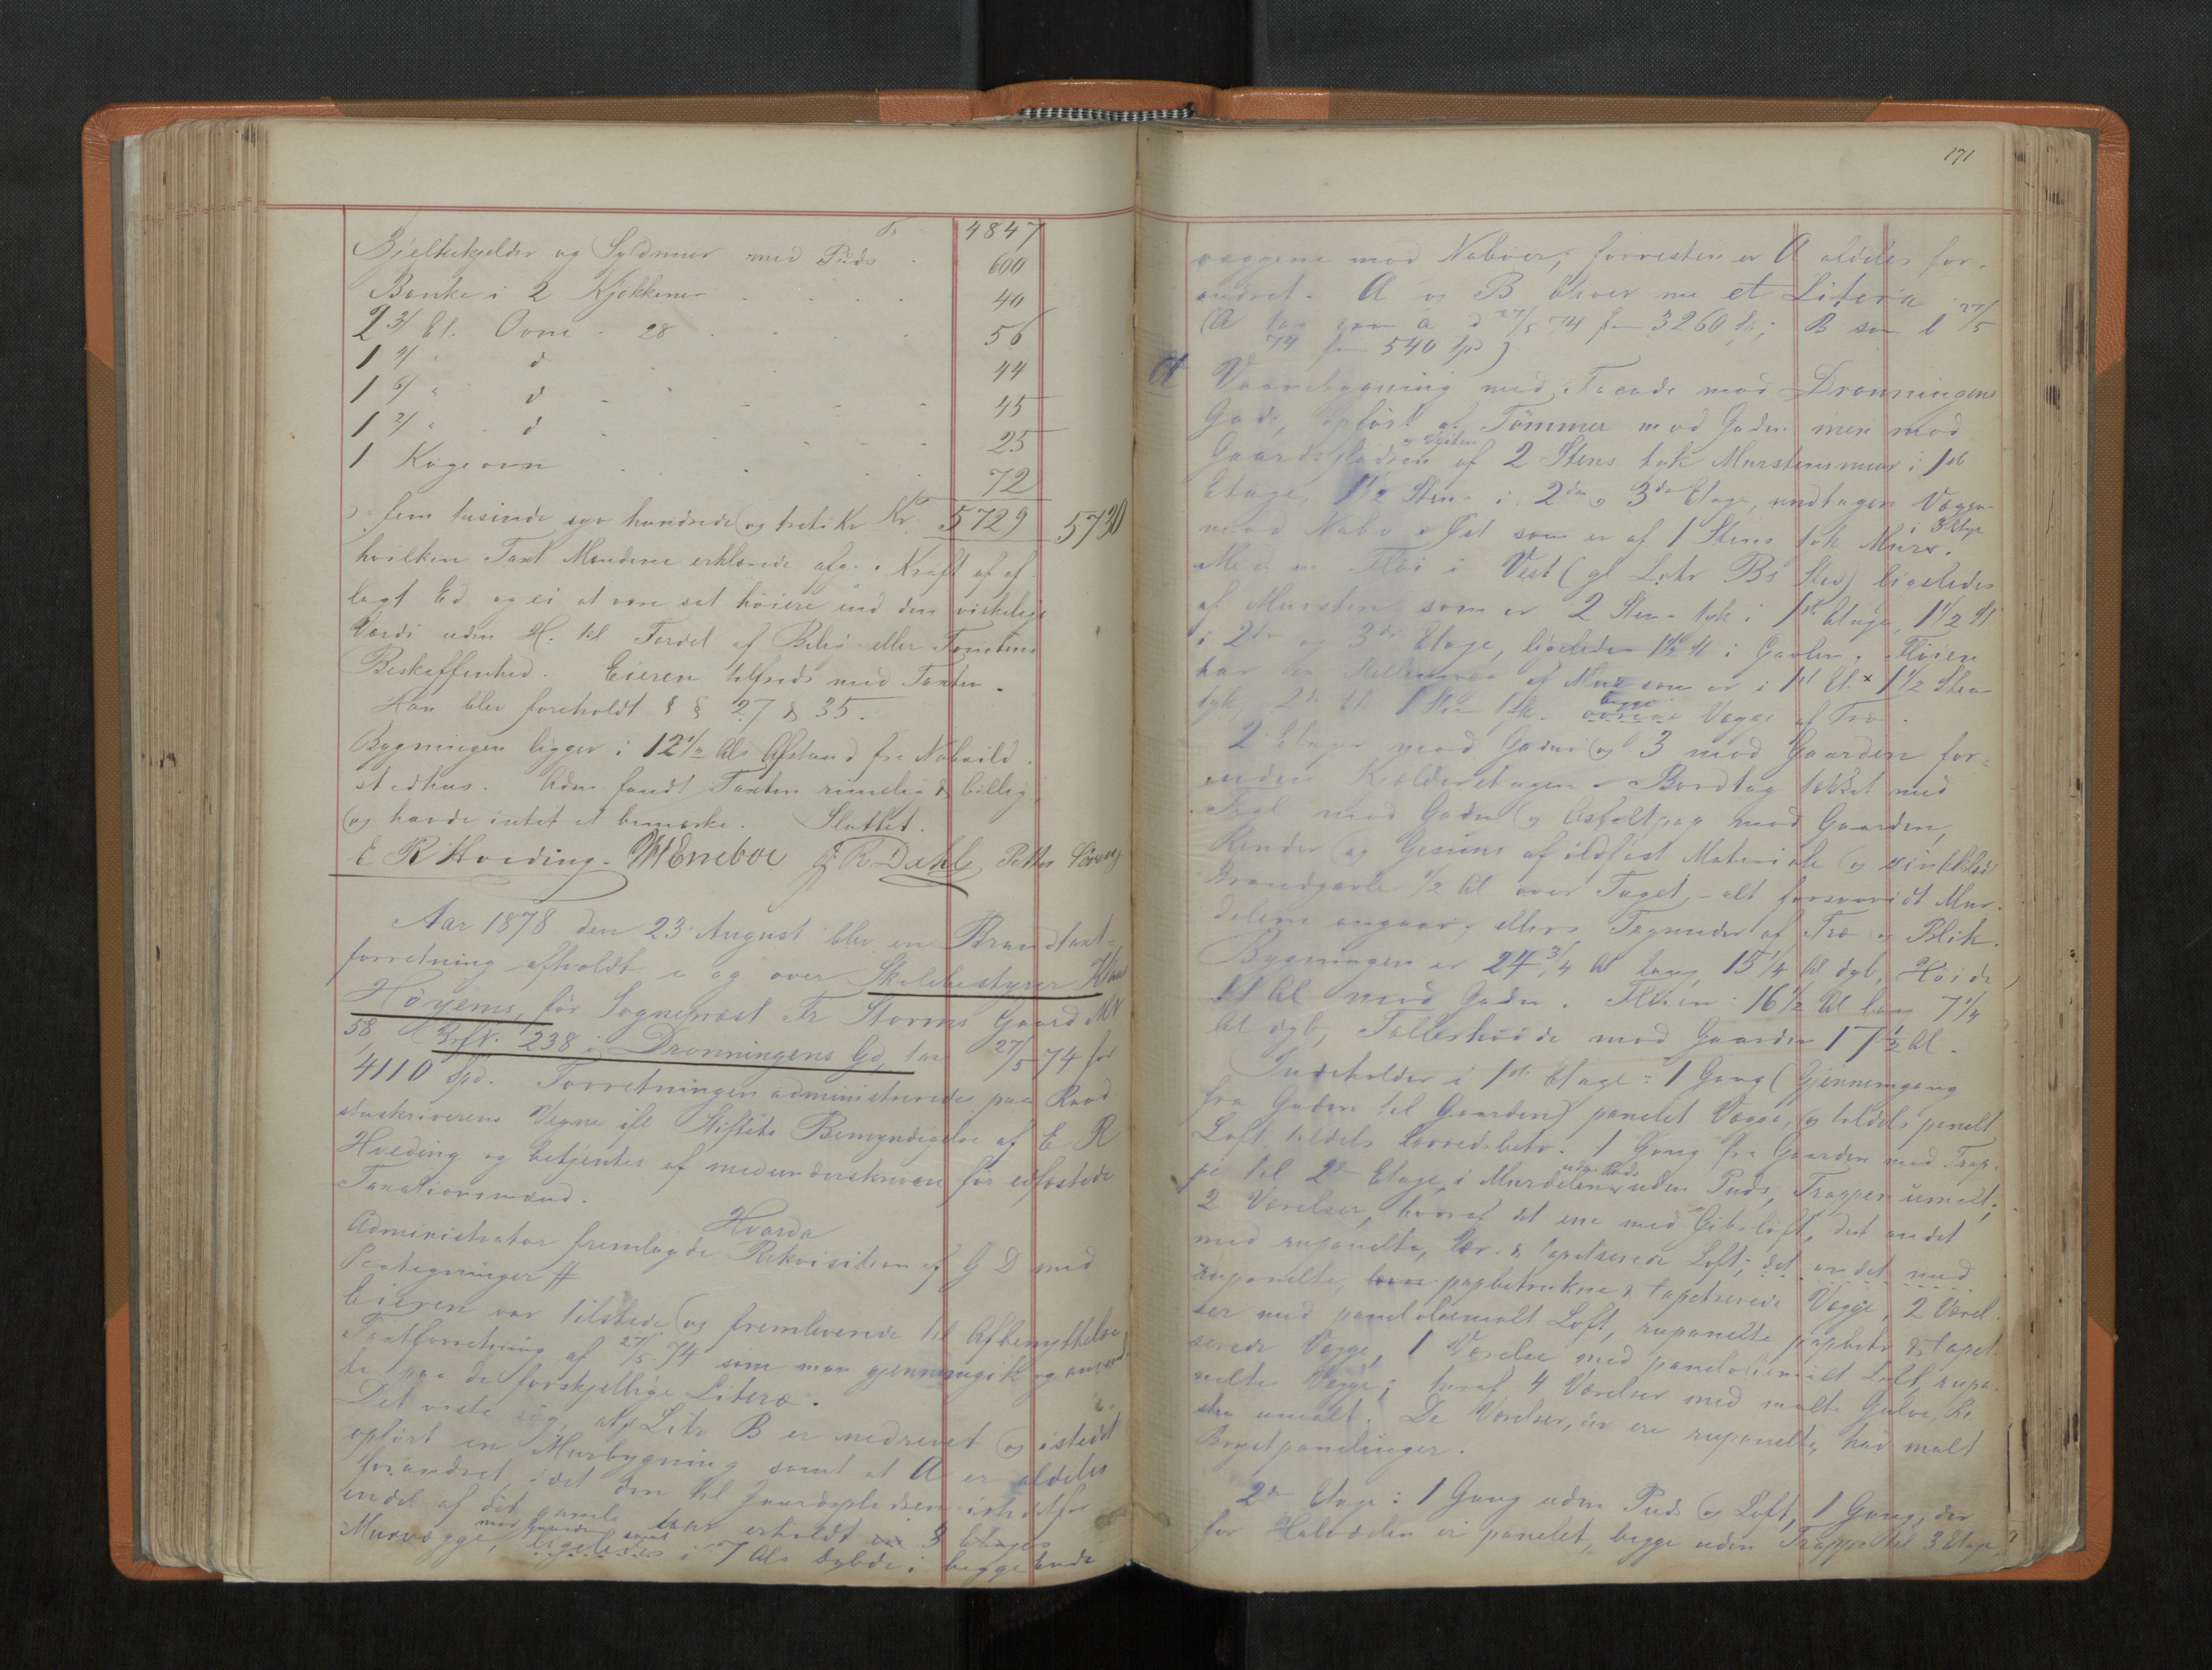 Tr. 4847
Bjelkekjelder og Syldmuur med Puds 600
Bænke i 2 Kjøkkener 40
2 3/ Et. Ovne 28 56
1 4/ " d 44
1 6/ " d 45
1 2/ " d 25
1 Kogeovn 72
ɔ: fem tusinde syv hundrede og treti Kr Kr. 5729 5730
hvilken Taxt Mændene erklærede afg. i Kraft af af-
lagt Ed og ei at være sat høiere end den virkelige
Værdi uden H. til Fordel af Belig. eller Tomtens
Beskaffenhed. Eieren tilfreds med Taxten.
Han blev foreholdt § § 27 & 35.
Bygningen ligger i 12 1/2 Als Afstand fra Naboild
stedhus. Adm fandt Taxten rimelig & billig,
og havde intet at bemærke. Sluttet.
E R Hveding. M Eneboe J R Dahl Petter
Aar 1878 den 23 August blev en Brandtaxt-
forretning afholdt i og over Skolebestyrer
Høyems, før Sogneprest Fr Storms Gaard MN
58, Brfk. 238 i Dronningens Gd, tax 27/5 74 for
4110 Spd. Forretningen administreredes paa Raad
stuskriverens Vegne ifl Stiftets Bemyndigelse af E R
Hveding og betjentes af medunderskrevne før edfæstede
Taxationsmænd.
Hvorda
Administrator fremlagde Rekvisition af G D med
Paategninger #
Eieren var tilstede og fremleverede til Afbenyttelse
Taxtforretning af 27/5 74 som man gjennemgik og anvend
te paa de forskjellige Litera.
Det viste sig, at Litr B er nedrevet og istedet
opført en Murbygning samt at A er aldeles
forandret idet den til Gaardspladsen istedetfor
endel af det gamle har erholdt en 3 Etages
mod Gaarden samt
Murvægge, ligeledes i 7 Als Dybde i begge Ender
171
væggene mod Naboer; forresten er A aldeles for-
andret. A og B bliver nu et Litera
(A tax som a d 27/5 74 for 3260 Sp; B som b 27/5
74 for 540 Spd)
A Vaanebygning med Facade mod Dronningens
Gade, opført af Tømmer mod Gaden men mod
og Veiten
Gaardspladsen af 2 Stens tyk Murstensmuur i 1ste
Etage, 1 1/2 Sten i 2den og 3die Etage, undtagen Væggen
mod Nabo i Øst som er af 1 Stens tyk Mur i 3 Etage.
Med en Fløi i Vest (gl Litr Bs Sted) ligeledes
af Mursten som er 2 Sten tyk i 1ste Etage, 1 1/2 St
i 2den og 3die Etage, ligeledes 1 1/2 St i Gavlen. Fløien
har en Mellemvæg af Mur som er i 1st Et. 1 1/2 Sten
tyk, 2de Et 1 Sten tyk. øvrige Vægge af Træ.
2 Etager mod Gaden og 3 mod Gaarden for-
uden Kjælderetagen. Bordtag tækket med
Tegl mod Gaden og Asfaltpap mod Gaarden,
Render og Gesims af ildfast Materiale og zinkklæd
Brandgavle 1/2 Al over Taget, - alt forsaavidt Mur-
delene angaar, ellers Tagrender af Træ og Blik.
Bygningen er 24 3/4 Al lang, 15 1/4 Al dyb, Høide,
11 Al mod Gaden. Fløien: 16 1/2 Al lang 7 1/4
Al dyb, Fælleshøide mod Gaarden 17 1/2 Al.
Indeholder i 1ste Etage: 1 Gang (Gjennemgang
fra Gaden til Gaarden) panelet Vægge, og tildels panelt
Loft, tildels lærredsbetr. 1 Gang fra Gaarden med Trap-
pe til 2den Etage, i Murdelen uden Puds, Trappen umalt;
2 Værelser, hvoraf det ene med Gibsloft, det andet
med rupanelte, lær. & tapetserede Loft; det andet med
rupanelte, papbetrukne & tapetserede Vægge, 2 Værel-
ser med panel oliemalt Loft, rupanelte papbetr & tapet
serede Vægge, 1 Værelse med panel oliemalt Loft, rupa-
nelte Vægge; heraf 4 Værelser med malte Gulve, Re
sten umalt. De Værelser, der ere rupanelte, har malt
Brystpanelinger.
2den Etage: 1 Gang uden Puds og Loft, 1 Gang, der
for Halvdelen er panelet, begge uden Trappe til 3 Etage